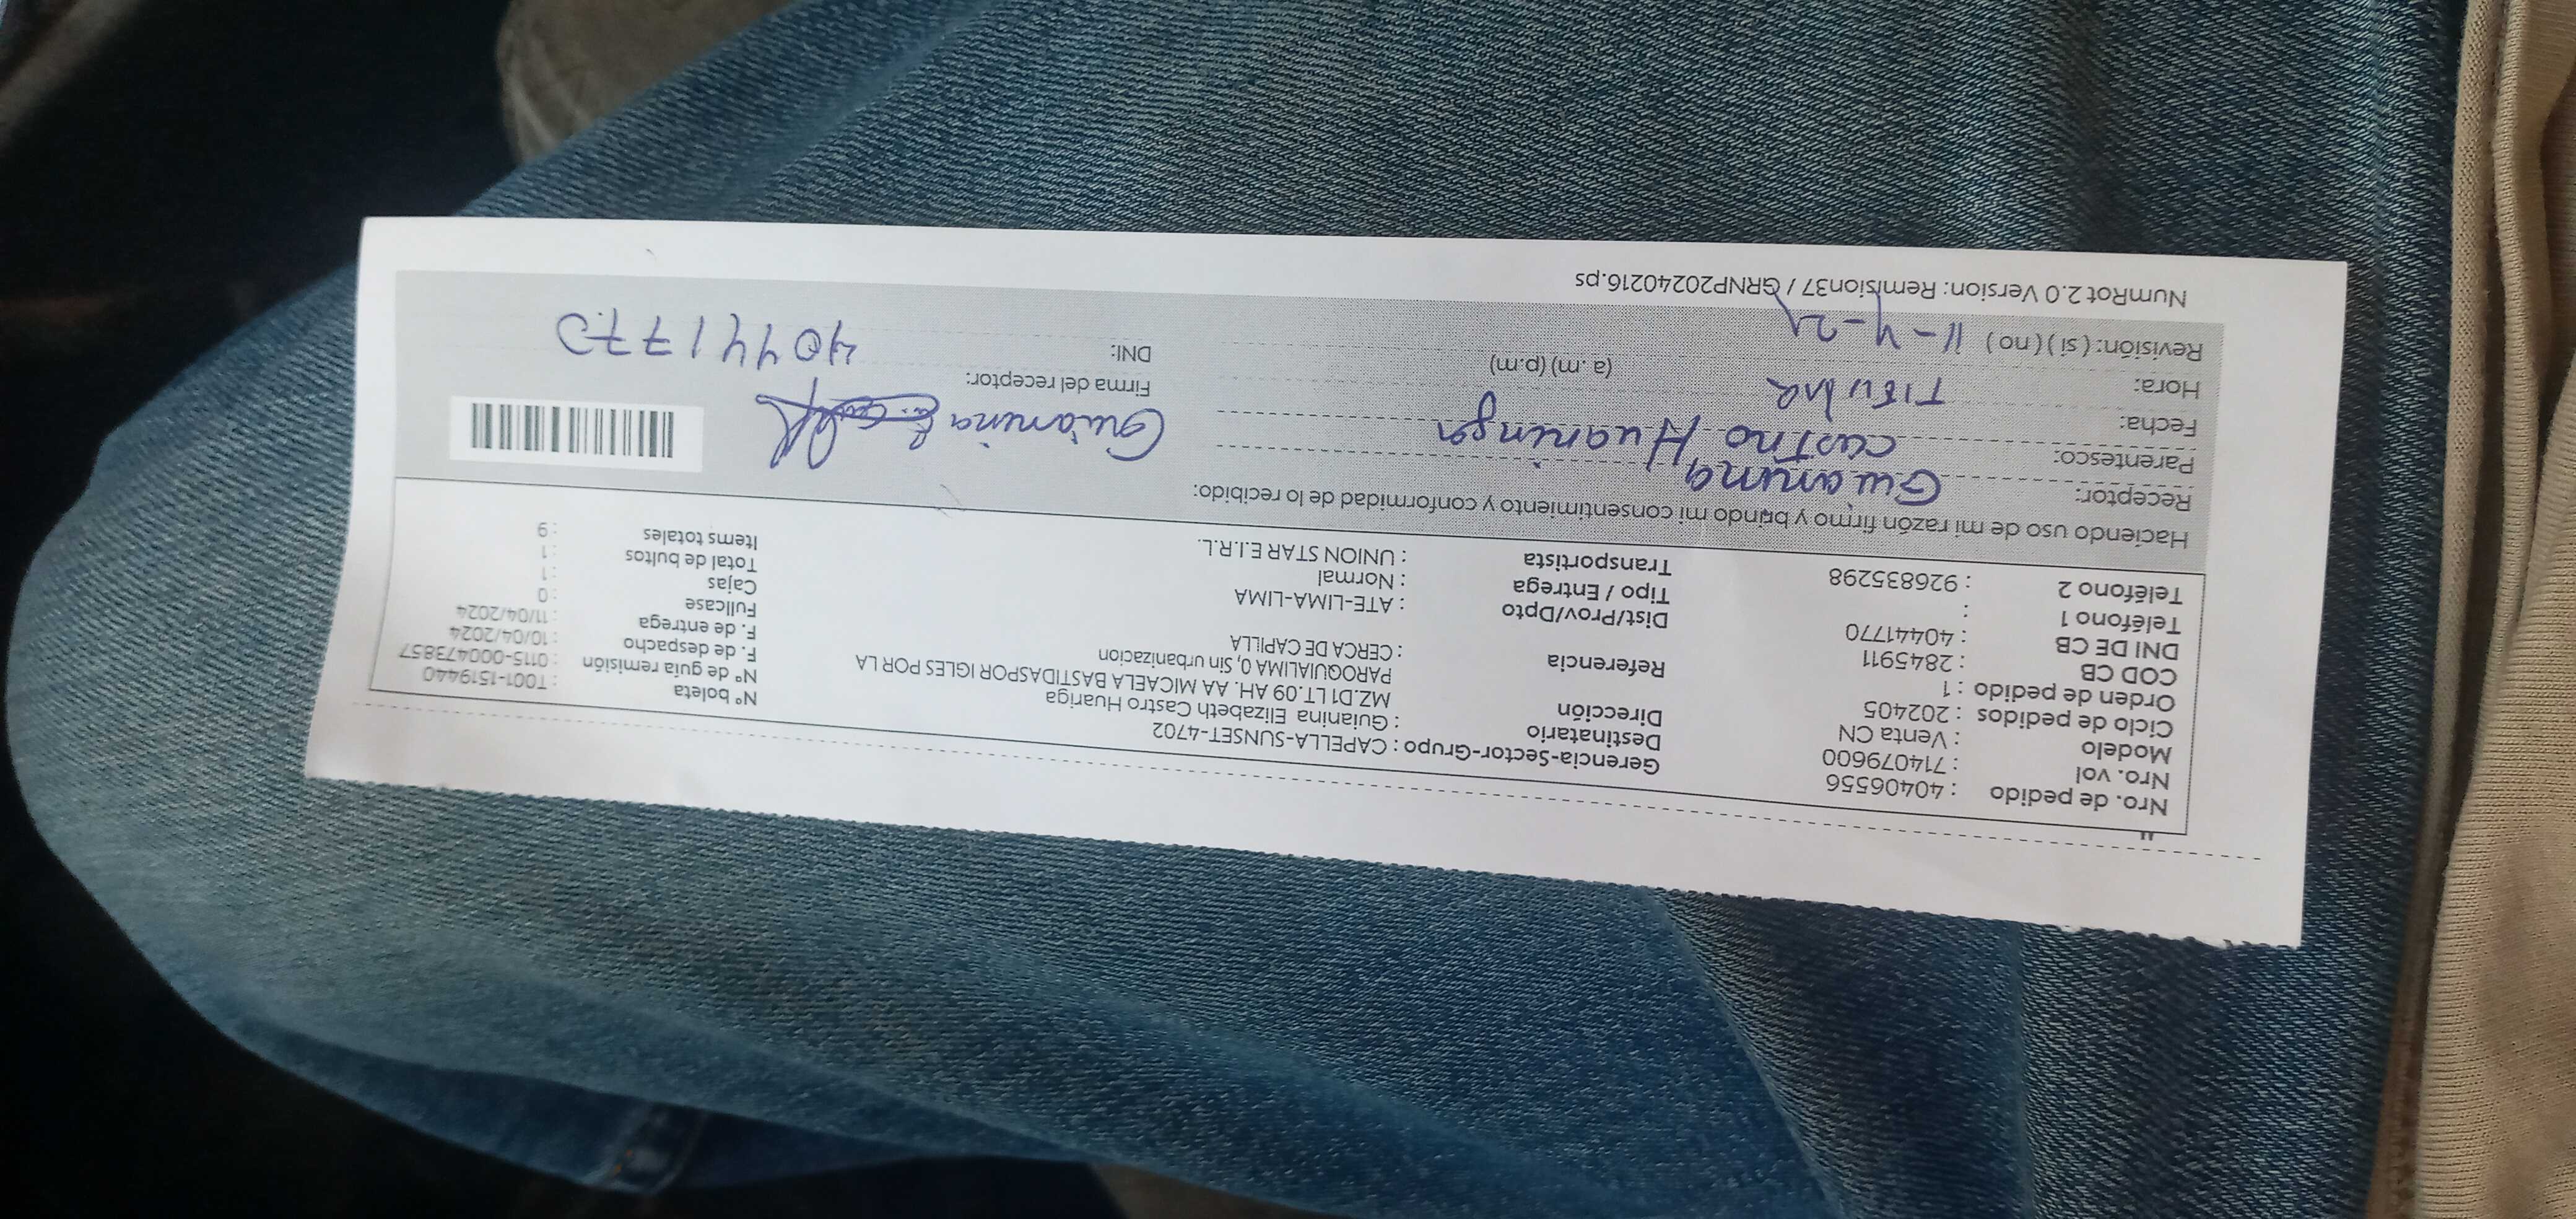 Nro. de pedido : 40406556
Nro. vol : 714079600
Modelo : Venta CN
Ciclo de pedidos : 202405
Orden de pedido : 1
COD CB : 2845911
DNI DE CB : 40441770
Teléfono 1 :
Teléfono 2 : 926835298
Gerencia-Sector-Grupo : CAPELLA-SUNSET-4702
Destinatario : Guianina Elizabeth Castro Huariga
Dirección MZ.D1 LT.09 AH. AA MICAELA BASTIDASPOR IGLES POR LA
PAROQUIALIMA 0, Sin urbanizacion
Referencia : CERCA DE CAPILLA
Dist/Prov/Dpto : ATE-LIMA-LIMA
Tipo / Entrega : Normal
Transportista : UNION STAR E.I.R.L.
Nº boleta : T001-1519440
Nº de guía remisión : 0115-000473857
F. de despacho : 10/04/2024
F. de entrega : 11/04/2024
Fullcase : 0
Cajas : 1
Total de bultos : 1
Items totales : 9
Haciendo uso de mi razón firmo y brindo mi consentimiento y conformidad de lo recibido:
Receptor: Guianina
Parentesco: Castro Huaringa
Fecha:
Hora: Titular (a .m) (p.m)
Revisión: ( si ) ( no ) 11-4-24
Firma del receptor: Guianina
DNI: 40441770
NumRot 2.0 Version: Remision37 / GRNP20240216.ps